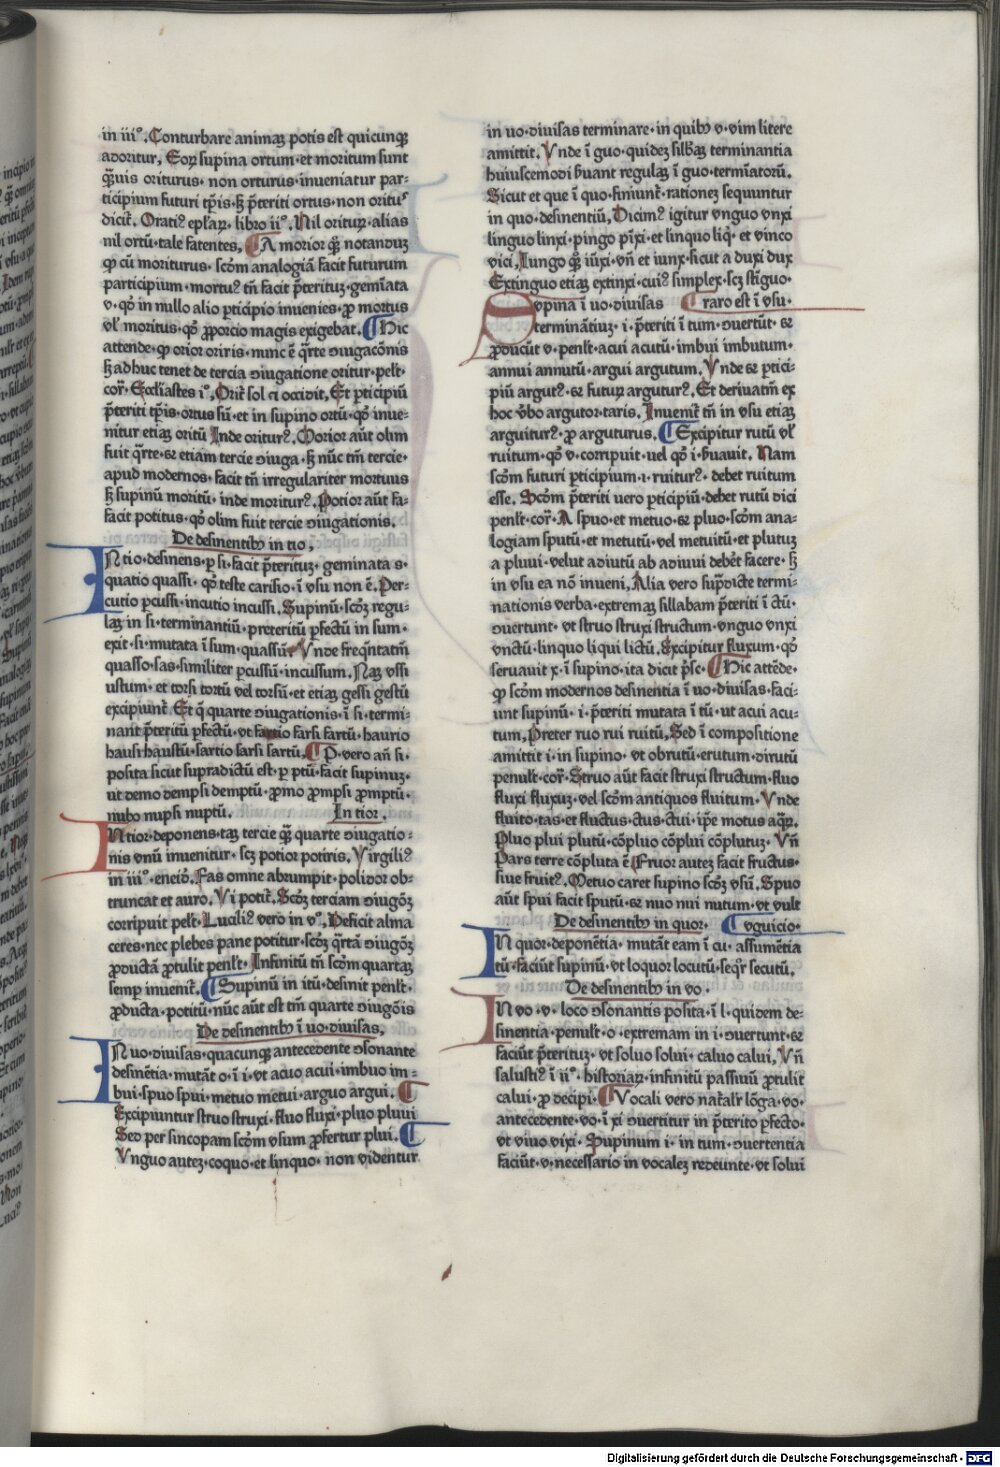 in iii°. Conturbare animaꝫ potis est quicunqꝫ
adoritur, Eoꝝ supina ortum · et moritum sunt
q̄uis oriturus · non orturus · inueniatur par⸗
ticipium futuri tꝑis · sꝫ p̄teriti ortus · non oritu⁹
dicit̄. Orati⁹ epl̄aꝝ · libro ii°. Nil oriturꝫ · alias
nil ortū · tale fatentes. ¶ A morior qꝫ notanduꝫ
ꝙ cū moriturus · scd̄m analogiā facit futurum
participium · mortu⁹ tn̄ facit p̄terituꝫ · gemīata
v · qd̓ in nullo alio ꝑticipio inuenies · ꝓ mortus
vl̓ moritus · qd̓ ꝓporcio magis exigebat. ¶ Hic
attende · ꝙ orior oriris · nunc ē q̄rte ↄiugacōnis
sꝫ adhuc tenet de tercia ↄiugatione oritur · pelt̄ ·
cor̄ · Eccl̄iastes i°. Orit̄ sol et occidit, Et ꝑticipiū
p̄teriti tꝑis · ortus sū · et in supino ortū · qd̓ inue⸗
nitur etiaꝫ oritū Inde oritur⁹. Morior aūt olim
fuit q̄rte · sꝫ etiam tercie ↄiuga · sꝫ nūc tm̄ tercie ·
apud modernos · facit tn̄ irregulariter mortuus
sꝫ supinū moritū · inde moritur⁹. Potior aūt fa⸗
facit potitus · qd̓ olim fuit tercie ↄiugationis.
De desinentibꝫ in tio.
IN tio · desinens · ꝑ si · facit p̄terituꝫ · geminata s ·
quatio quassi · qd̓ teste carisio · ī vsu non ē. Per⸗
cutio ꝑcussi · incutio incussi. Supinū · scd̄ꝫ regu⸗
laꝫ in si · terminantiū · preteritū ꝑfectū in sum ·
exit · si · mutata ī sum · quassū · Vnde freq̄ntatm̄
quasso · sas · similiter ꝑcussū · incussum. Naꝫ vssi
ustum · et torsi tortū vel torsū · et etiaꝫ gessi gestū
excipiunt̄. Et q̄ quarte ↄiugationis · ī si · termi⸗
nant p̄teritū ꝑfectū · vt farcio farsi fartū · haurio
hausi haustū · sartio sarsi sartū. ¶ P · vero an̄ si ·
posita sicut supradictū est · ꝑ ptū · facit supinuꝫ ·
ut demo dempsi demptū · ꝓmo ꝓmpsi ꝓmptū ·
nubo nupsi nuptū. In tior.
IN tior · deponens · taꝫ tercie qꝫ quarte ↄiugatio⸗
nis vnū inuenitur · scꝫ potior potiris. Virgili⁹
in iii° · eneid̓. Fas omne abrumpit · polidor̄ ob⸗
truncat et auro. Vi potit̄. Scd̄ꝫ terciam ↄiugōꝫ
corripuit pelt̄ · Lucili⁹ vero in v°. Deficit alma
ceres · nec plebes pane potitur · scd̄ꝫ q̄rtā ↄiugōꝫ
ꝓductā ꝓtulit penl̄t · Infinitū tn̄ scd̄m quartaꝫ
semꝑ inuenit̄. ¶ Supinū in itū · desinit penl̄t ·
ꝓducta · potitū · nūc aūt est tm̄ quarte ↄiugōis
De desinentibꝫ ī uo · diuisas.
IN uo · diuisas · quacunqꝫ antecedente ↄsonante
desinētia · mutāt o · ī i · vt acuo acui · imbuo im⸗
bui · spuo spui · metuo metui · arguo argui. ¶
Excipiuntur struo struxi · fluo fluxi · pluo pluui
Sed per sincopam scd̄m vsum ꝓfertur plui. ¶
Vnguo auteꝫ · coquo · et linquo · non videntur
in uo · diuisas terminare · in quibꝫ v · vim litere
amittit. Vnde ī guo · quideꝫ sillabaꝫ terminantia
huiuscemodi ẜuant regulaꝫ ī guo · termīatoꝝ.
Sicut et que ī quo · finiunt̄ · rationeꝫ sequuntur
in quo · desinentiū, Dicim⁹ igitur vnguo vnxi
linguo linxi · pingo pīxi · et linquo liq̄ · et vinco
vici, Iungo qꝫ iūxi · vn̄ et iunx · sicut a duxi dux
Extinguo etiaꝫ extinxi · cui⁹ simplex · scꝫ stīguo ·
SVpina ī uo · diuisas ¶ raro est ī vsu ·
terminātiuꝫ · i · p̄teriti ī tum · ↄuertūt · sꝫ
ꝓducūt v · penl̄t · acui acutū · imbui imbutum ·
annui annutū · argui argutum. Vnde sꝫ ꝑtici⸗
piū argut⁹ · sꝫ futuꝝ argutur⁹. Et deriuatm̄ ex
hoc v̓bo argutor · taris. Inuenit̄ tn̄ in vsu etiaꝫ
arguitur⁹ · ꝓ arguturus. ¶ Excipitur rutū vl̓
ruitum · qd̓ v · corripuit · uel qd̓ i · ẜuauit. Nam
scd̄m futuri ꝑticipium · i · ruitur⁹ · debet ruitum
esse. Scd̄m p̄teriti uero ꝑticipiū · debet rutū dici
penl̄t · cor̄. A spuo · et metuo · sꝫ pluo · scd̄m ana⸗
logiam sputū · et metutū · vel metuitū · et plutuꝫ
a pluui · velut adiutū ab adiuui debet̄ facere · sꝫ
in vsu ea nō inueni, Alia vero sup̄dicte termi⸗
nationis verba · extremaꝫ sillabam p̄teriti ī ctū ·
ↄuertunt · vt struo struxi structum · vnguo vnxi
vnctū · linquo liqui lictū. Excipitur fluxum · qd̓
seruauit x · ī supino · ita dicit p̄sc · ¶ Hic attēde ·
ꝙ scd̄m modernos desinentia ī uo · diuisas · faci⸗
unt supinū · i · p̄teriti mutata ī tū · ut acui acu⸗
tum, Preter ruo rui ruitū, Sed ī compositione
amittit i · in supino · vt obrutū · erutum · dirutū
penult · cor̄ · Struo aūt facit struxi structum · fluo
fluxi fluxuꝫ · vel scd̄m antiquos fluitum · Vnde
fluito · tas · et fluctus · ctus · ctui · ip̄e motus aq̄ꝝ.
Pluo plui plutū · cōpluo cōplui cōplutuꝫ · Vn̄
Pars terre cōpluta ē Fruor auteꝫ facit fructus ·
siue fruit⁹. Metuo caret supino scd̄ꝫ vsū. Spuo
aūt spui facit sputū · sꝫ nuo nui nutum · vt vult
De desinentibꝫ in quor. ¶ vguicio ·
IN quor · deponētia · mutāt eam ī cu · assumētia
tū · faciūt supinū · vt loquor locutū · seq̄r secutū.
De desinentibꝫ in vo ·
IN vo · v · loco ↄsonantis posita · ī l · quidem de⸗
sinentia · penult · o · extremam in i · ↄuertunt · sꝫ
faciūt p̄terituꝫ · vt soluo solui · caluo calui, Vn̄
salusti⁹ ī ii° · historiaꝝ · infinitū passiuū ꝓtulit
calui · ꝓ decipi · ¶ Vocali vero nat̄alr̄ lōga · vo ·
antecedente · vo · ī xi ↄuertitur in p̄terito ꝑfecto ·
vt viuo vixi · Supinum i · in tum · ↄuertentia
faciūt · v · necessario in vocaleꝫ redeunte · vt solui
Digitalisierung gefördert durch die Deutsche Forschungsgemeinschaft - DFG